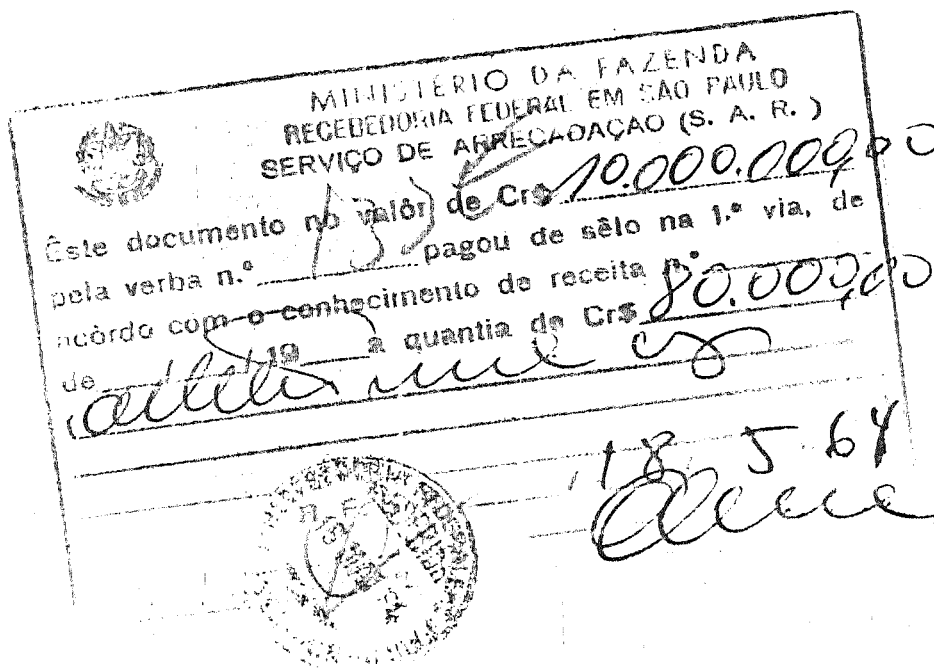 MINISTÉRIO DA FAZENDA
RECEBEDORIA FEDERAL EM SÃO PAULO
SERVIÇO DE ARRECADAÇÃO (S. A. R. )
Êste documento no valôr de Cr$ 10.000.000,00
pela verba n.º pagou de sêlo na 1.ª via, de
acôrdo com o conhecimento de receita n.º
de / /19 a quantia de Cr$ 80.000,00
18 5 64